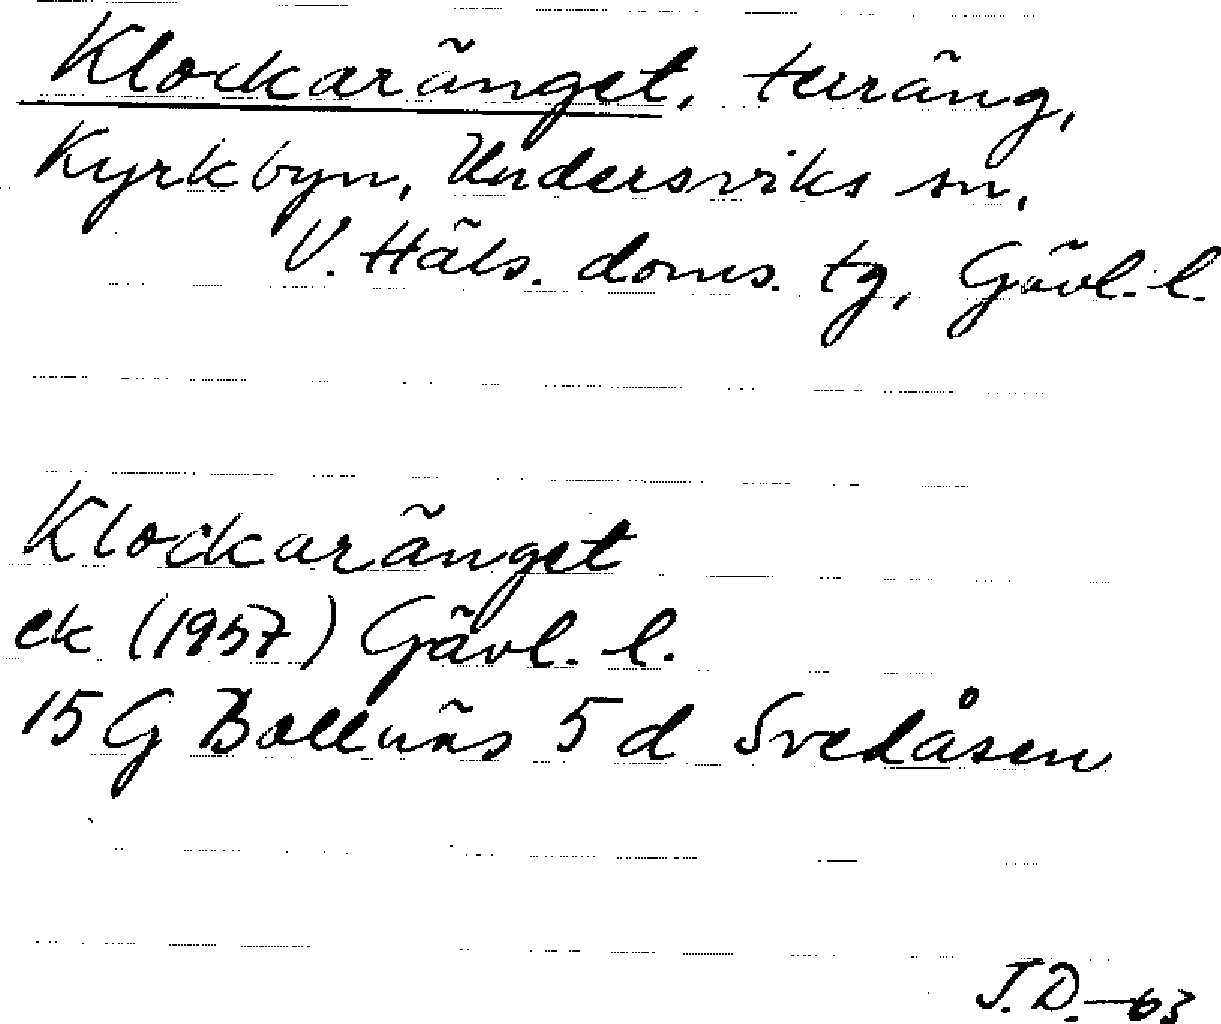 Klockaränget, terräng,
Kyrkbyn, Undersviks sn,
V. Häls. doms. tg, Gävl. l.
Klockaränget
ek (1957) Gävl. l.
15 G Bollnäs 5 d Svedåsen
J.D. -63